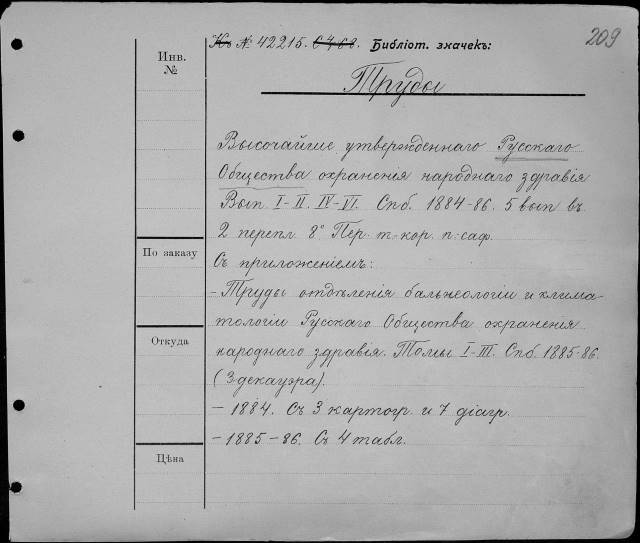 209
Къ № 42215. С46в. Библіот. значекъ:
Инв.
№
Труды
Высочайше утвержденнаго Русскаго
Общества охраненія народнаго здравія
Вып. I-II. IV-VI. Спб. 1884-86. 5 вып въ
2 перепл 8° Пер. т-кор. п: саф.
Съ приложеніемъ:
По заказу
- Труды отдѣленія бальнеологіи и клима-
тологіи Русскаго Общества охраненія
Откуда
народнаго здравія. Томы I-III. Спб. 1885-86.
(3 декауэра).
- 1884. Съ 3 картогр. и 7 діагр.
- 1885-86. Съ 4 табл.
Цѣна